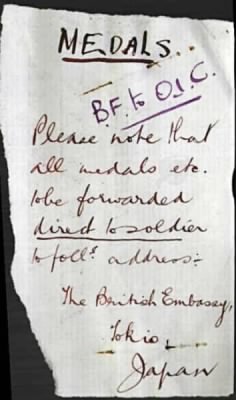 MEDALS.
B.F. to O.I.C.
Please note that
all medals etc.
to be forwarded
direct to soldier
to foll^g address:-
The British Embassy,
Tokio,
Japan